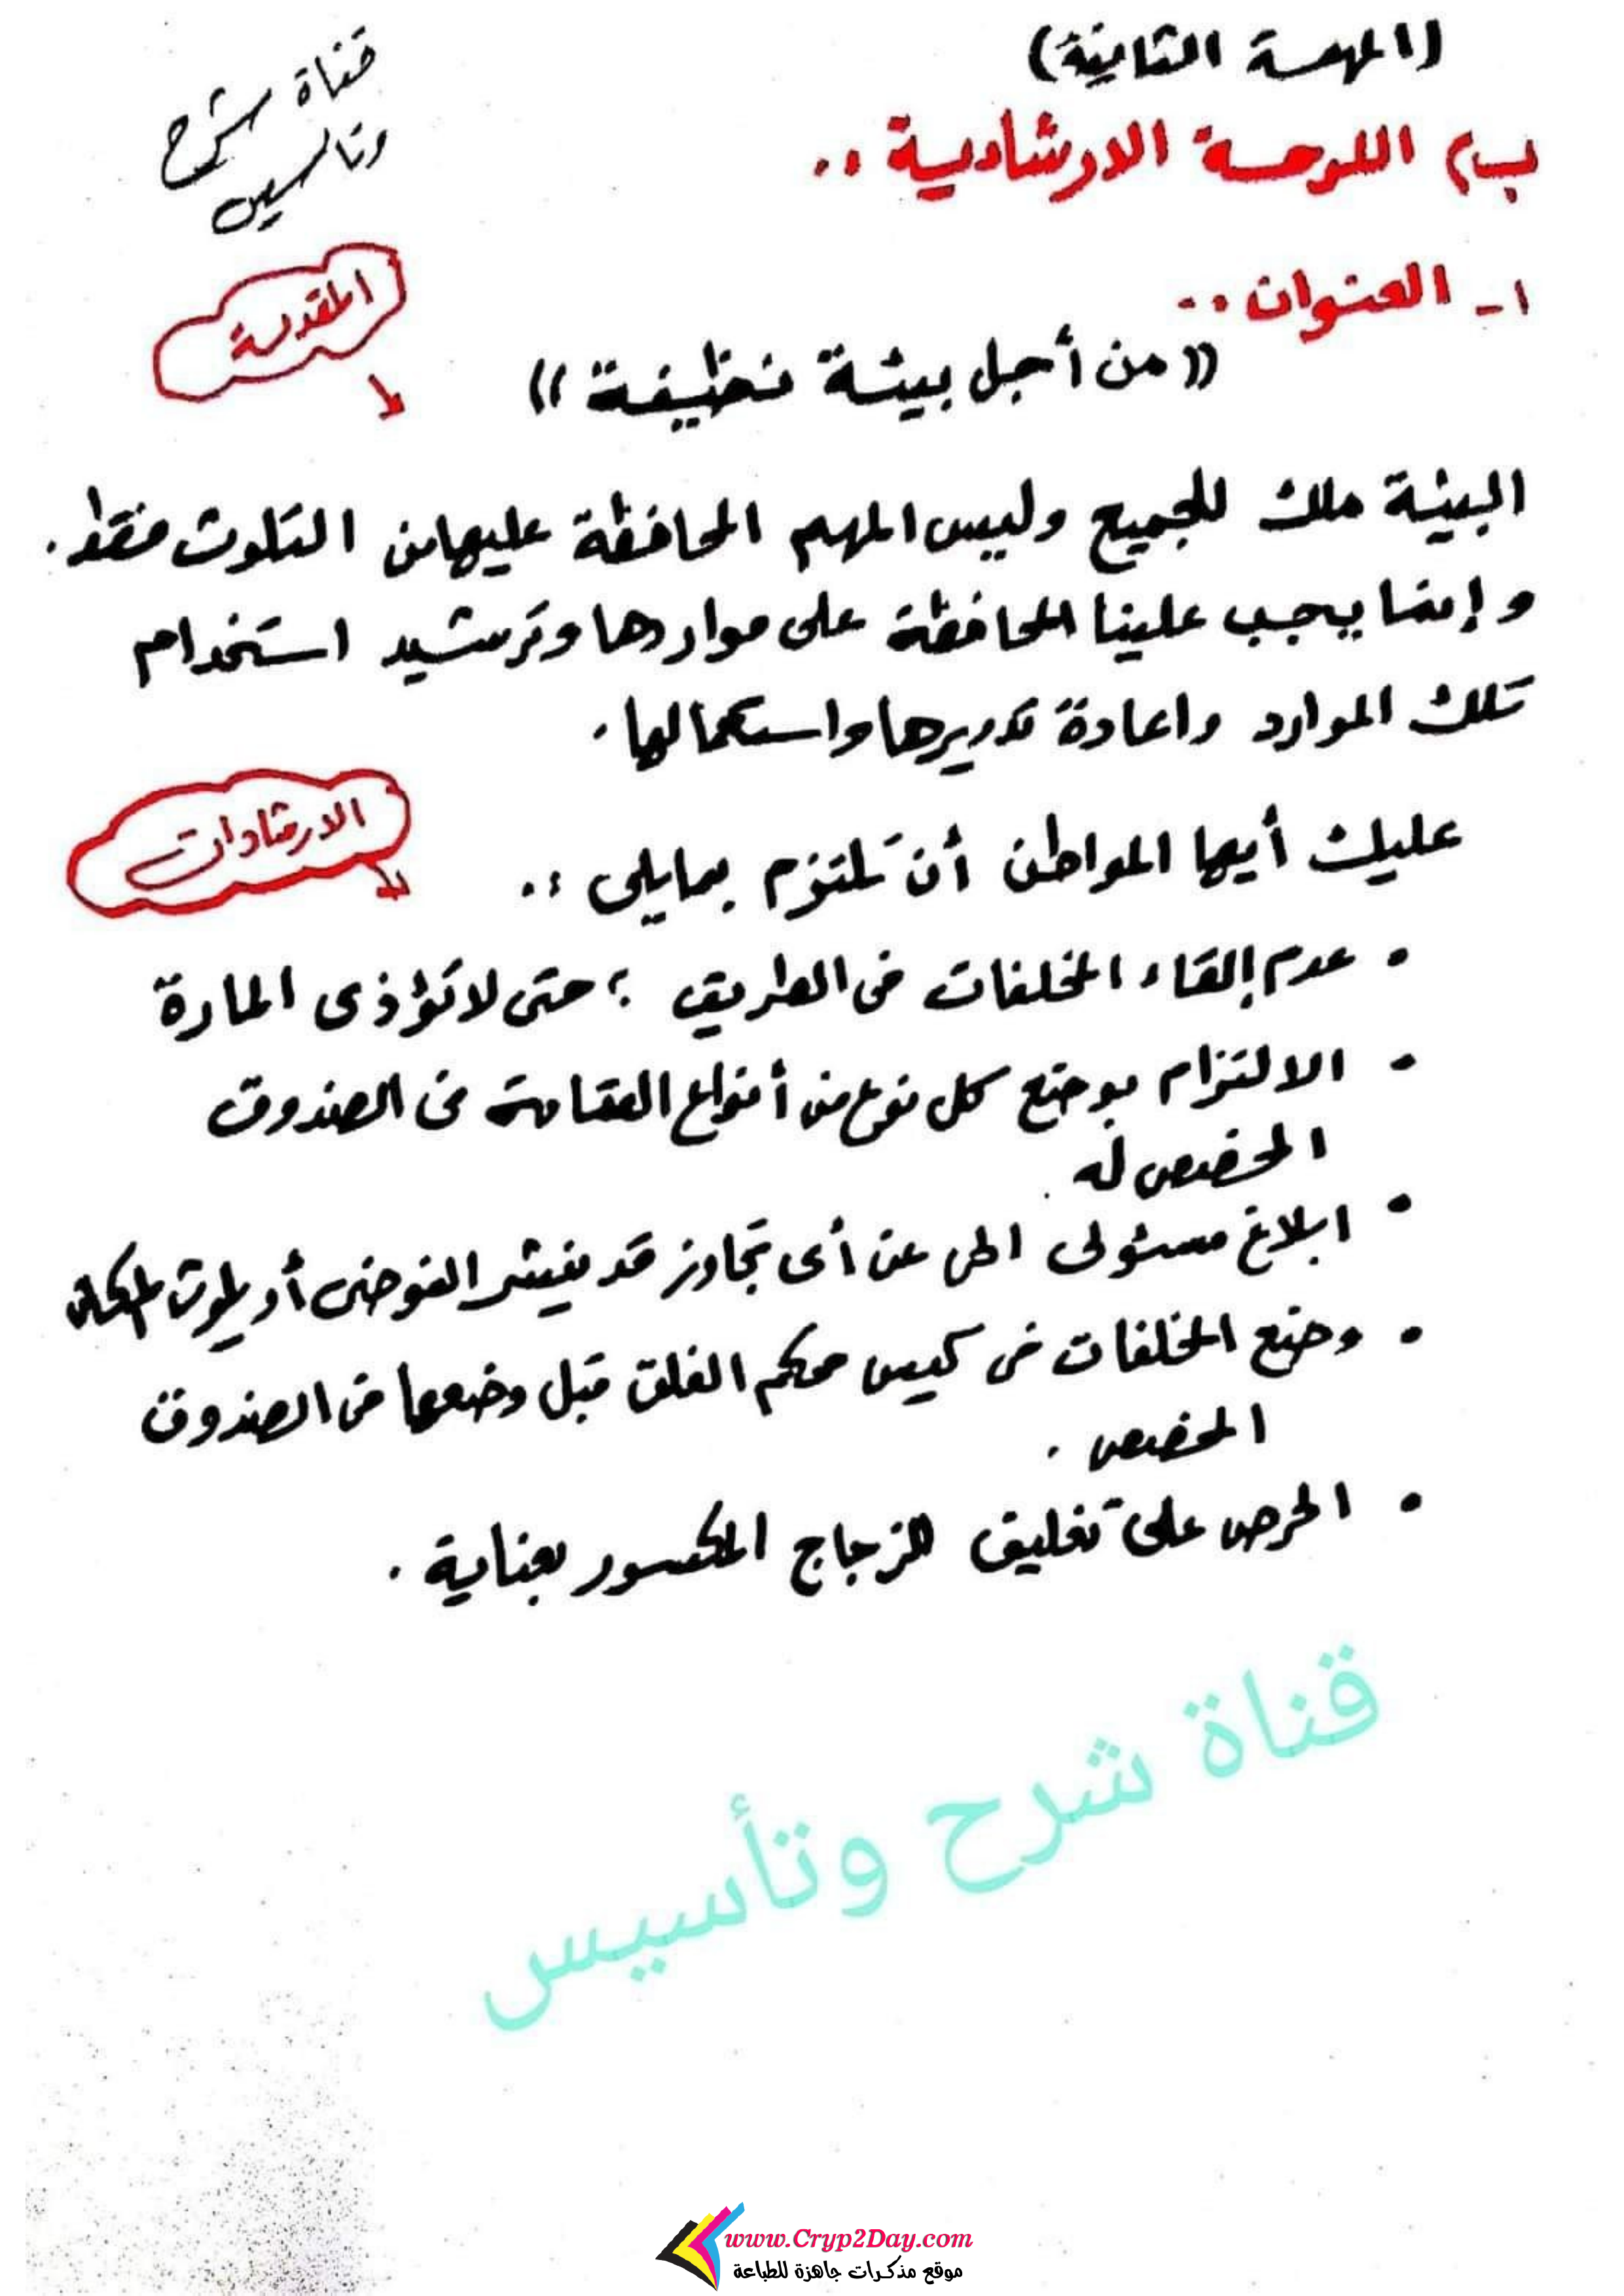 (المهمة الثانية)
قناة شرح
وتاسيس
ب) اللوحة الارشادية ..
١- العنوان ..
المقدمة
(( من أجل بيئة نظيفة ))
البيئة ملك للجميع وليس المهم المحافظة عليها من التلوث فقط .
وإنما يجب علينا المحافظة على مواردها وترشيد استخدام
تلك الموارد واعادة تدويرها واستعمالها .
الارشادات
عليك أيها المواطن أن تلتزم بمايلى :.
• عدم إلقاء المخلفات فى الطريق ؛ حتى لا تؤذى المارة
- الالتزام بوضع كل نوع من أنواع القمامة فى الصندوق
المخصص له .
• ابلاغ مسئولى الحى عن أى تجاوز قد ينشر الفوضى أو يلوث المكان
• وضع المخلفات فى كيس محكم الغلق قبل وضعها فى الصندوق
المخصص .
• الحرص على تغليف الزجاج المكسور بعناية .
قناة شرح وتأسيس
www.Cryp2Day.com
موقع مذكرات جاهزة للطباعة